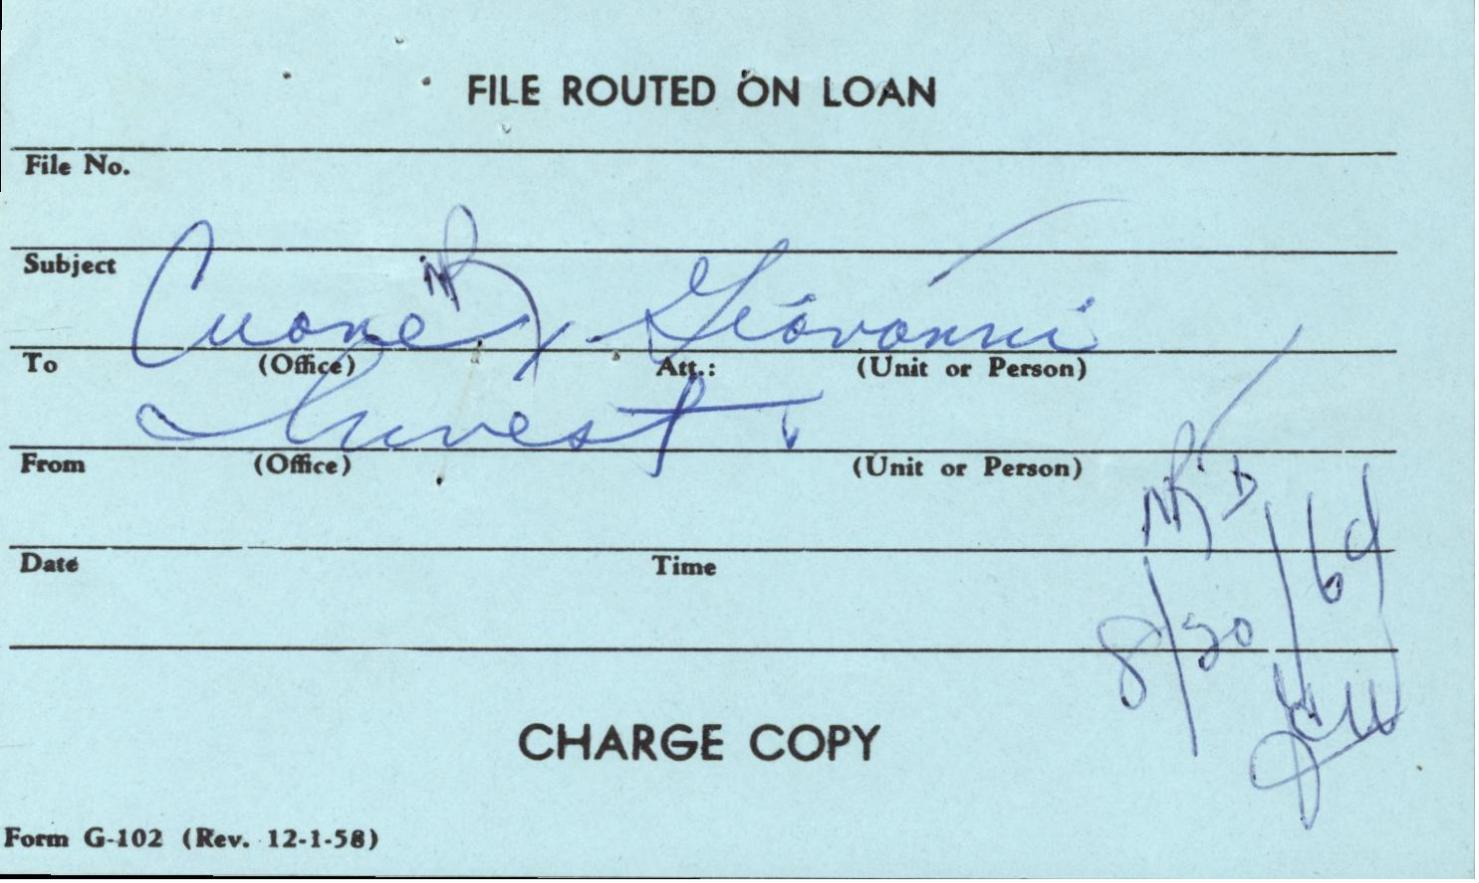 FILE ROUTED ON LOAN
File No.
Subject
NR
Cuone, Giovanni
To (Office) Att.: (Unit or Person)
Invest
From (Office) (Unit or Person)
NR
Date Time
8/20/64
CHARGE COPY
Form G-102 (Rev. 12-1-58)